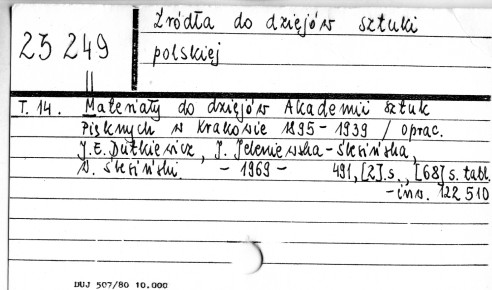 25 249
Źródła do dziejów sztuki
polskiej
T. 14. Materiały do dziejów Akademii Sztuk
Pięknych w Krakowie 1895-1939 / oprac.
J.E. Dutkiewicz, J. Jeleniewska-Ślesińska,
W. Ślesiński. - 1969 - 491, [2] s., [68] s. tabl.
- inw. 122 510
DUJ 507/80 10.000